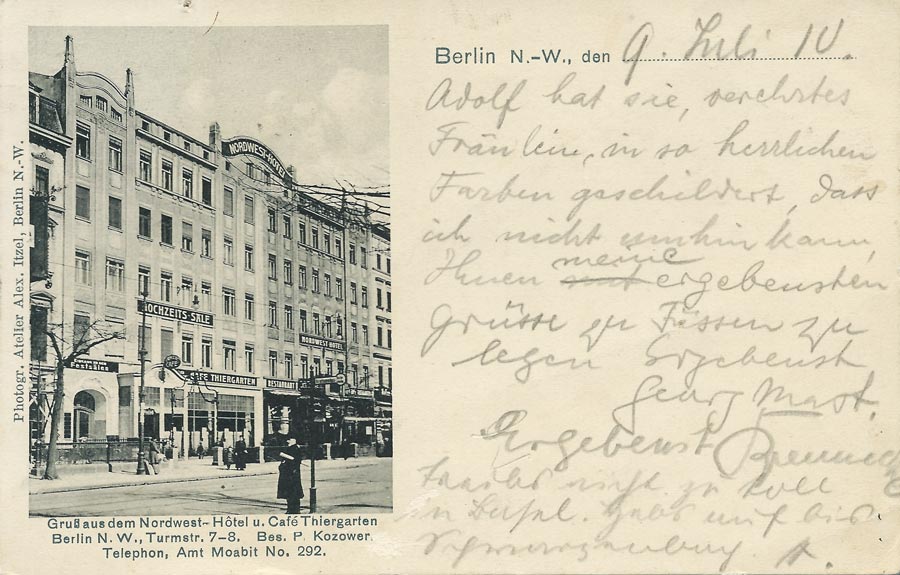 Photogr. Atelier Alex. Itzel, Berlin N.-W.
NORDWEST-HOTEL
HOCHZEITS-SÄLE
NORDWEST HOTEL
Festsälen
CAFÉ
CAFÉ THIERGARTEN
RESTAURANT
Gruß aus dem Nordwest-Hôtel u. Café Thiergarten
Berlin N. W., Turmstr. 7-8. Bes. P. Kozower.
Telephon, Amt Moabit No. 292.
Berlin N.-W., den 9. Juli 10.
Adolf hat sie, verehrtes
Fräulein, in so herrlichen
Farben geschildert, dass
ich nicht umhin kann,
Ihnen meine ergebensten
Grüsse zu Füssen zu
legen Ergebenst
Georg Mast.
Ergebenst
nicht zu toll
in